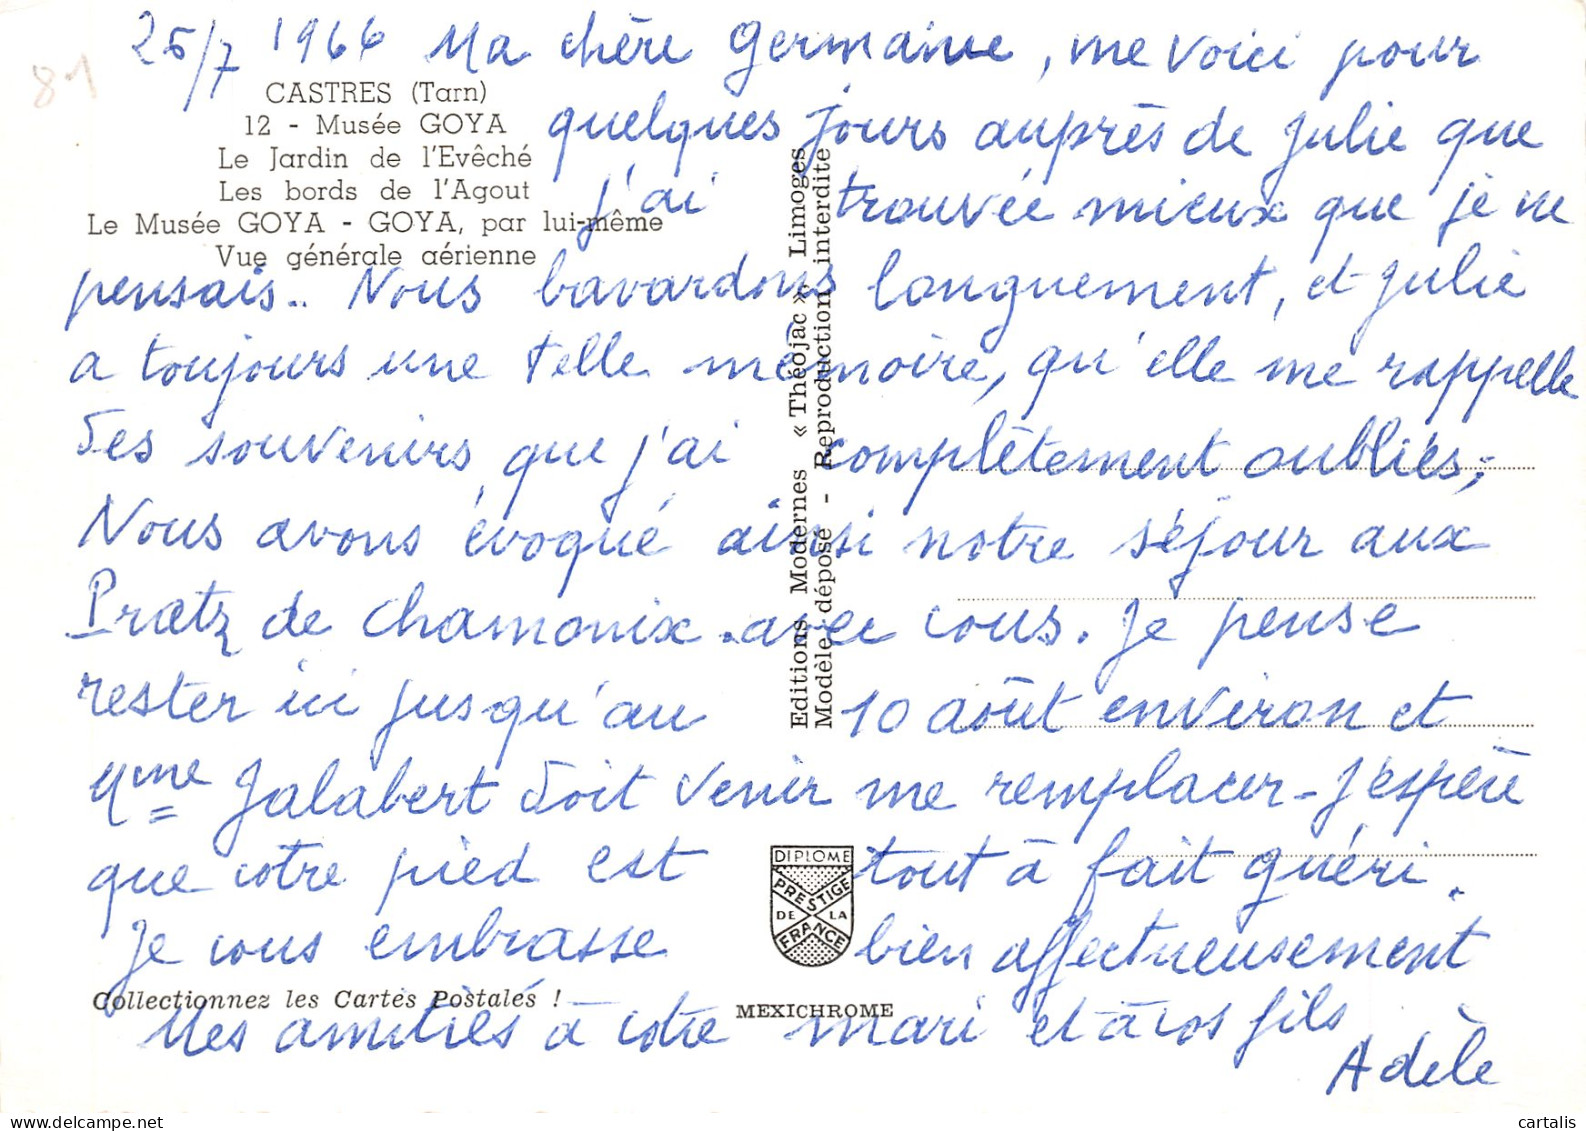 25/7 1966 Ma chère Germaine, me voici pour
81
CASTRES (Tarn)
12 - Musée GOYA
Le Jardin de l'Evêché
Les bords de l'Agout
Le Musée GOYA - GOYA, par lui-même
Vue générale aérienne
quelques jours auprès de Julie que
j'ai trouvée mieux que je ne
pensais.. Nous bavardons longuement, et Julie
a toujours une telle mémoire, qu'elle me rappelle
des souvenirs que j'ai complètement oubliés;
Nous avons évoqué ainsi notre séjour aux
Praetz de Chamonix avec vous. Je pense
rester ici jusqu'au 10 août environ et
Mme Jalabert doit venir me remplacer - J'espère
que votre pied est tout à fait guéri.
Je vous embrasse bien affectueusement
Mes amitiés à votre mari et à vos fils
Adèle
Editions Modernes « Théojac » Limoges
Modèle déposé - Reproduction interdite
DIPLOME
PRESTIGE
DE LA
FRANCE
Collectionnez les Cartes Postales !
MEXICHROME
cartalis